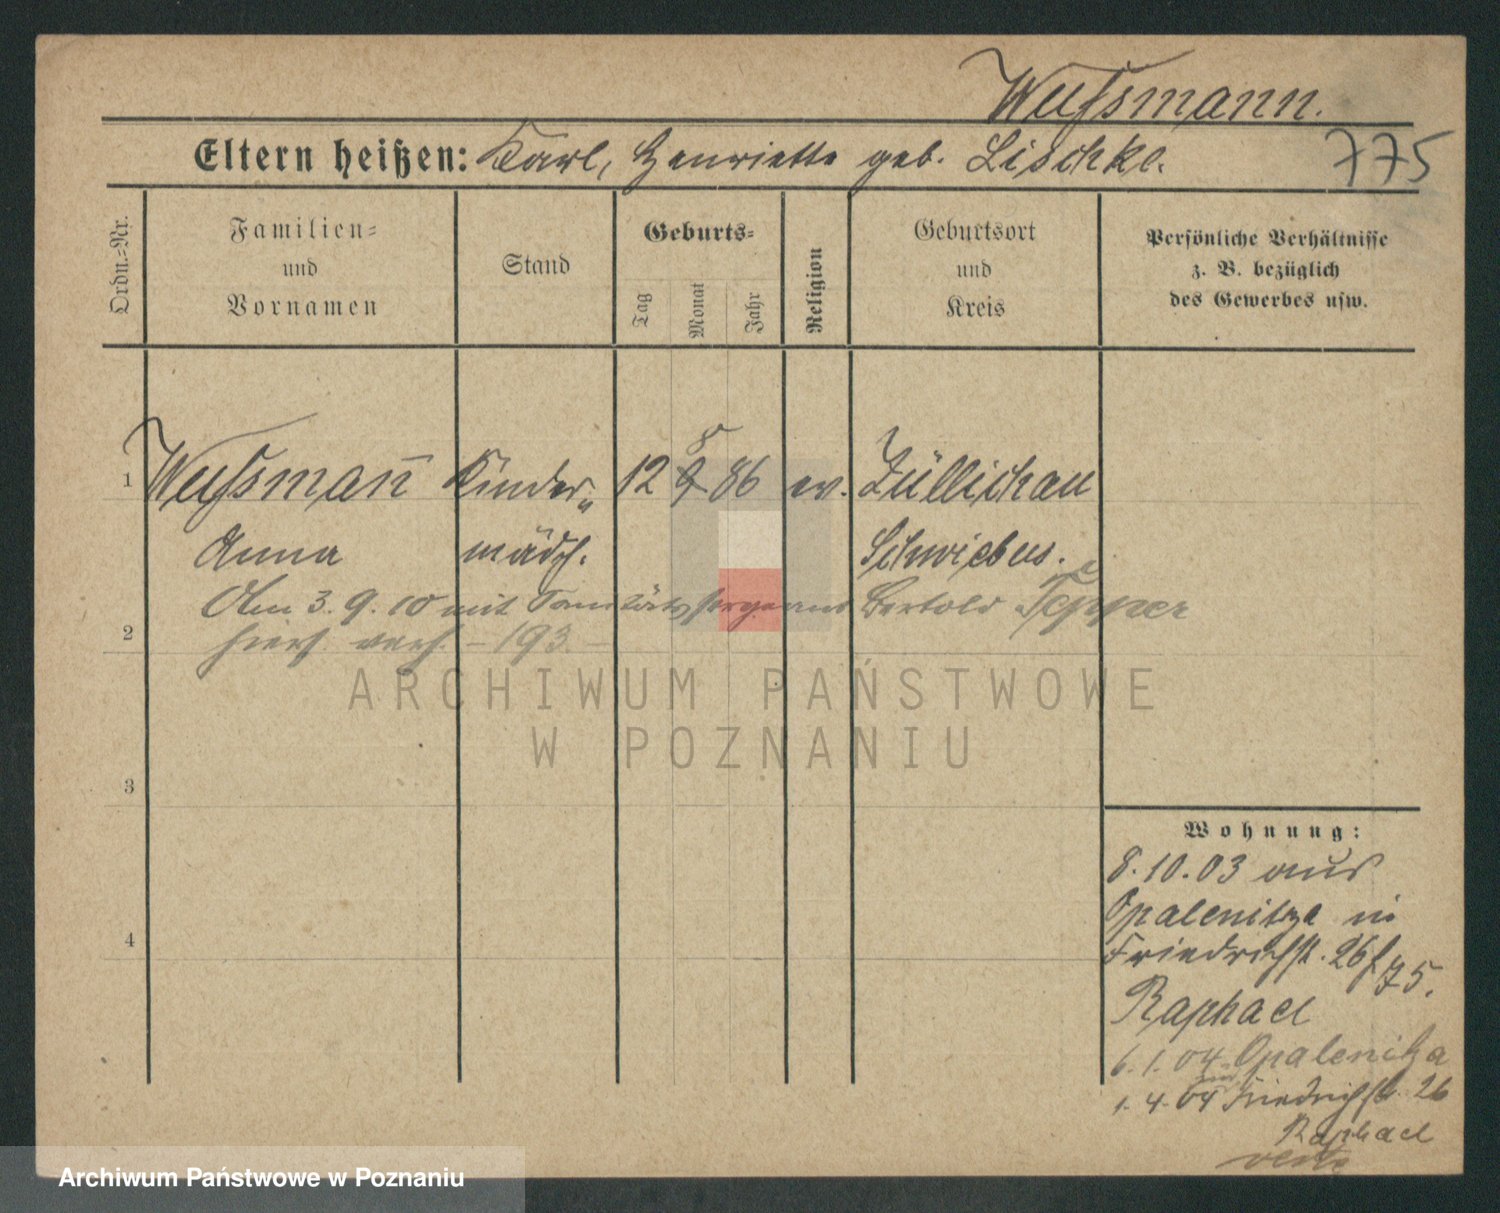 Wussmann.
Eltern heißen: Karl, Henriette geb. Lischke.
775
Ordn.-Nr.
Familien-
und
Vornamen
Stand
Geburts-
Tag
Monat
Jahr
Religion
Geburtsort
und
Kreis
Persönliche Verhältnisse
z. B. bezüglich
des Gewerbes usw.
8
1 Wussmañ Kinder„ 12 86 ev. Züllichau
Anna mädch. Schwiebus.
Am 3.9.10 mit Sanitätssergeant Bertold Tepper
2
hier verh. – 193. –
ARCHIWUM PAŃSTWOWE
W POZNANIU
3
4
Wohnung:
8.10.03 aus
Opalenitza in
Friedrichst. 26 f 75.
Raphael
6.1.04 Opalenitza
1.4.04 Friedrichst. 26
Raphael
Archiwum Państwowe w Poznaniu